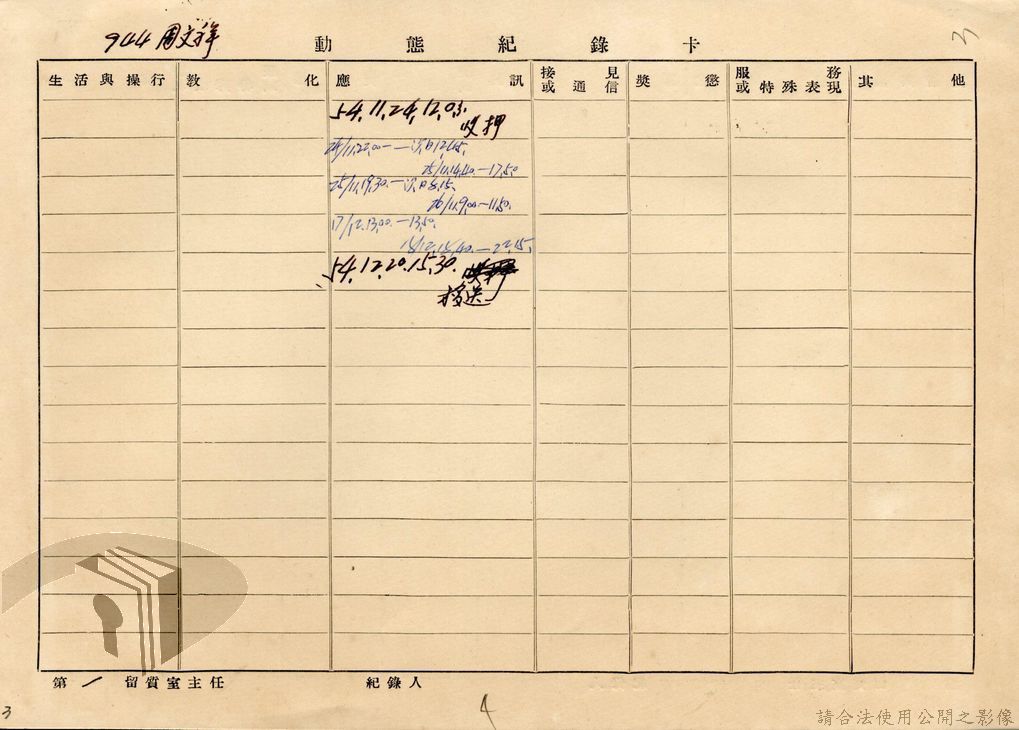 944 周文祥
3
動態紀錄卡
生活與操行 教化 應訊 接見或通信 獎懲 服務或特殊表現 其他
54.11.24.12.03.
收押
24/11.22.00-—次日12.45.
25/11.14.40.—17.50
25/11.19.30.—次日8.15.
26/11.9.00—11.50.
17/12.13.00.—13.50.
18/12.15.40.—22.15.
54.12.20.15.30.
移送
第 一 留質室主任 紀錄人
3
4
請合法使用公開之影像